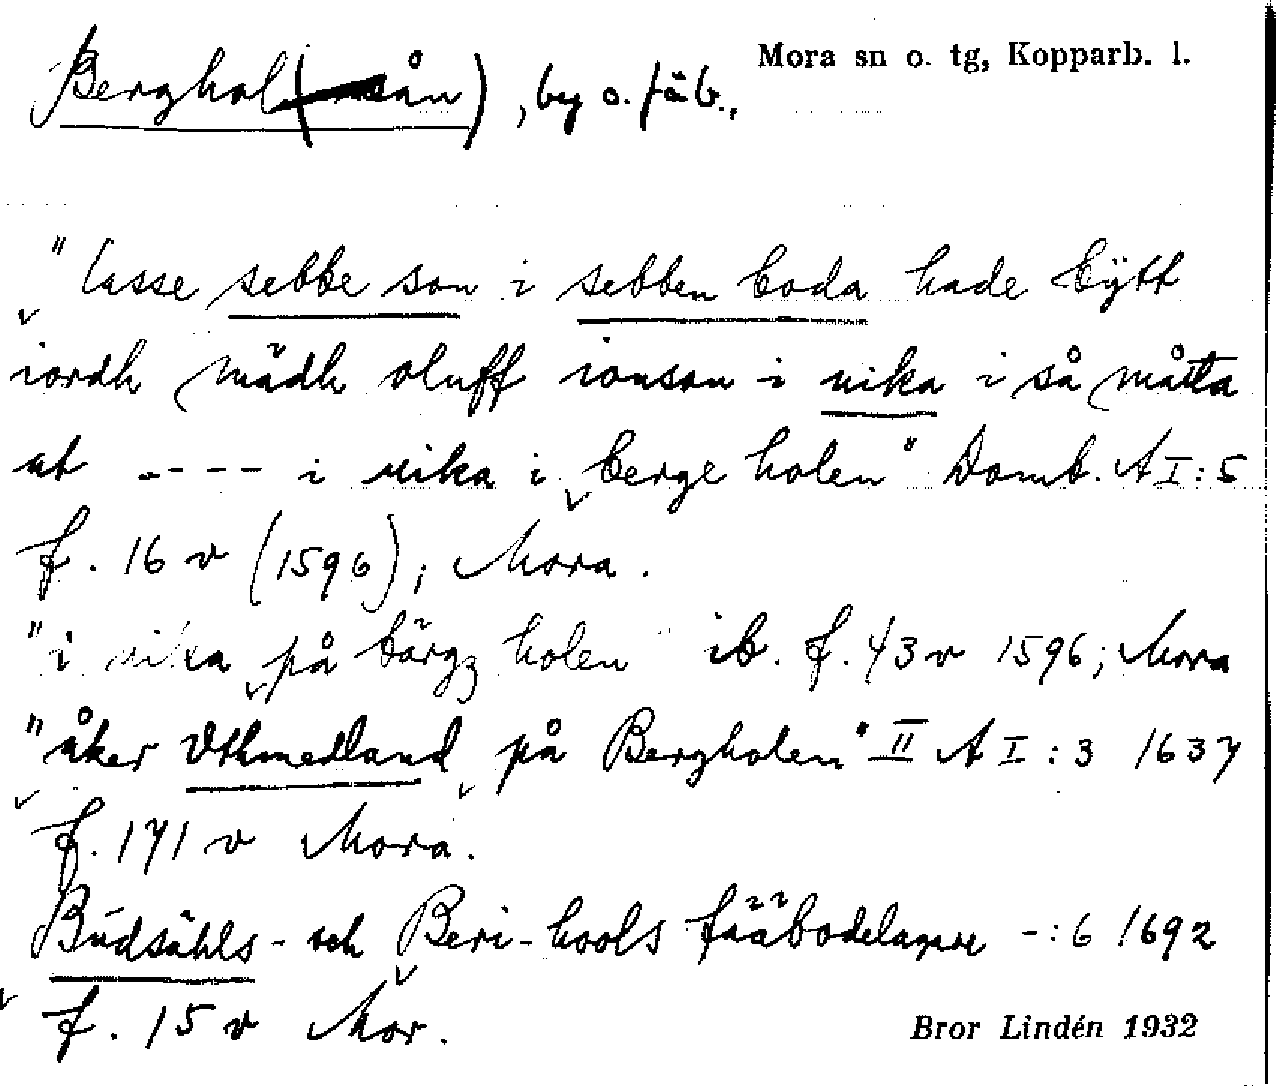 Berghol(ån), by o. fäb., Mora sn o. tg, Kopparb. l.
" lasse sebbe son i sebben boda hade bÿtt
iordh mädh oluff ionson i vika i så måtta
at ---- i vika i berge holen" Domb. A I:5
f. 16 v (1596); Mora.
"i vika på bärgz holen" ib. f. 43 v 1596; Mora
"åker Vthmedland på Bergholen" II A I:3 1637
f. 171 v Mora.
Budsähls- och Beri-hools fääbodelagare -:6 1692
f. 15 v Mor.
Bror Lindén 1932